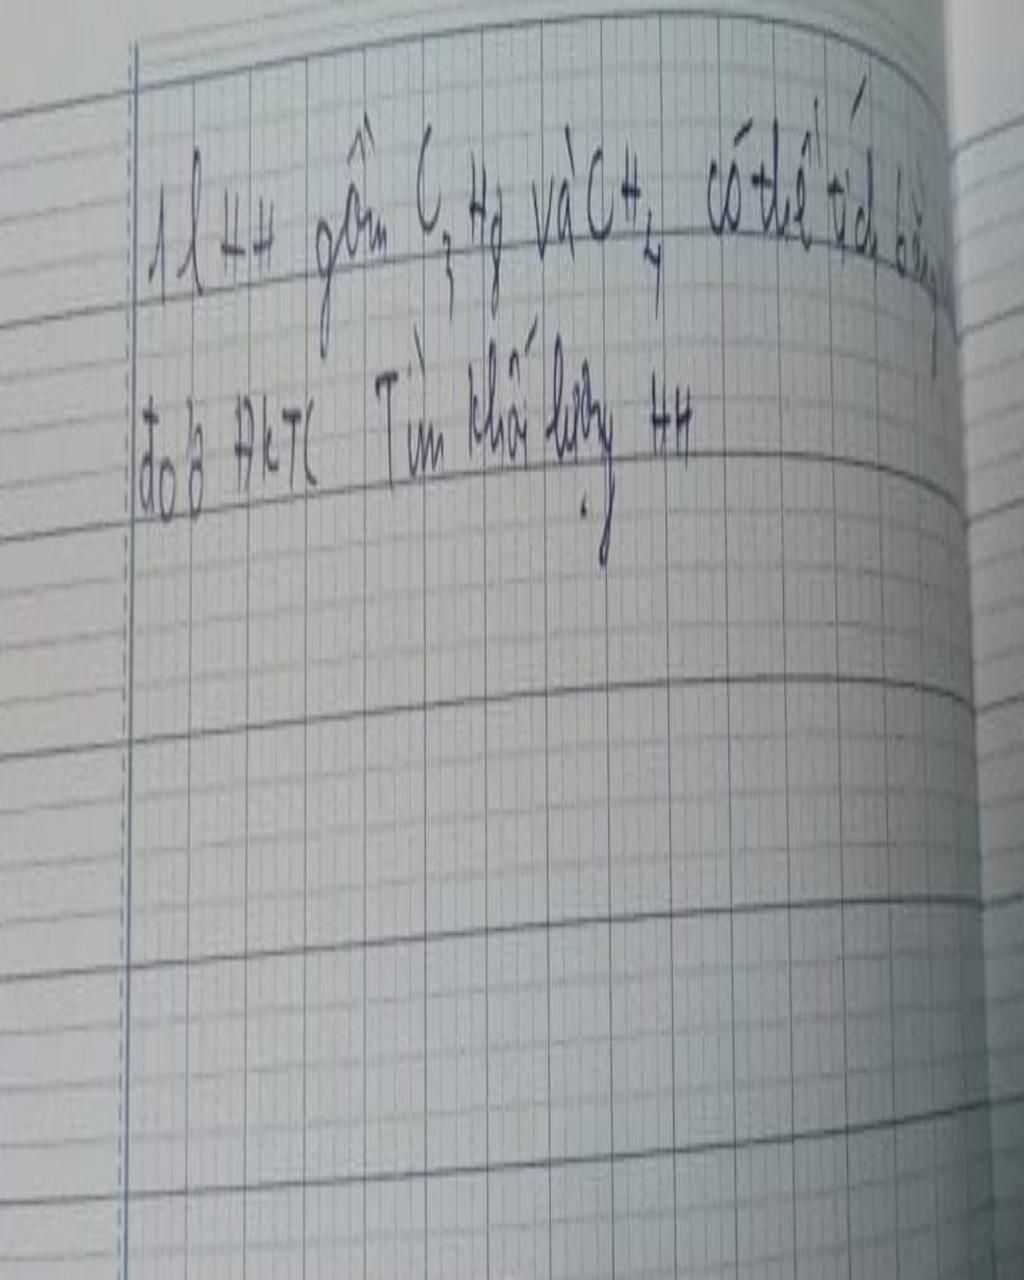 1l HH gồm C3H8 và CH4 có thể tích bằng
đo ở ĐKTC Tìm khối lượng HH